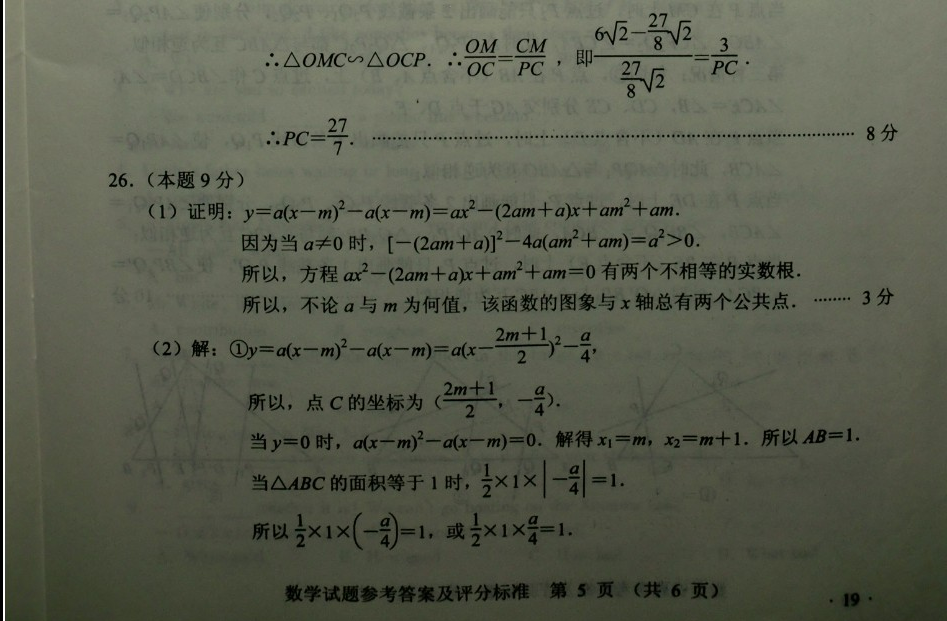 ∴△OMC∽△OCP. ∴OM/OC=CM/PC, 即(6√2-27/8√2)/(27/8√2)=3/PC.
∴PC=27/7. ……… 8分
26.(本题9分)
(1)证明:y=a(x-m)²-a(x-m)=ax²-(2am+a)x+am²+am.
因为当a≠0时,[-(2am+a)]²-4a(am²+am)=a²>0.
所以,方程ax²-(2am+a)x+am²+am=0有两个不相等的实数根.
所以,不论a与m为何值,该函数的图象与x轴总有两个公共点. ……… 3分
(2)解:①y=a(x-m)²-a(x-m)=a(x-(2m+1)/2)²-a/4,
所以,点C的坐标为((2m+1)/2,-a/4).
当y=0时,a(x-m)²-a(x-m)=0.解得x₁=m,x₂=m+1.所以AB=1.
当△ABC的面积等于1时,1/2×1×|-a/4|=1.
所以1/2×1×(-a/4)=1,或1/2×1×a/4=1.
数学试题参考答案及评分标准 第5页(共6页)
·19·